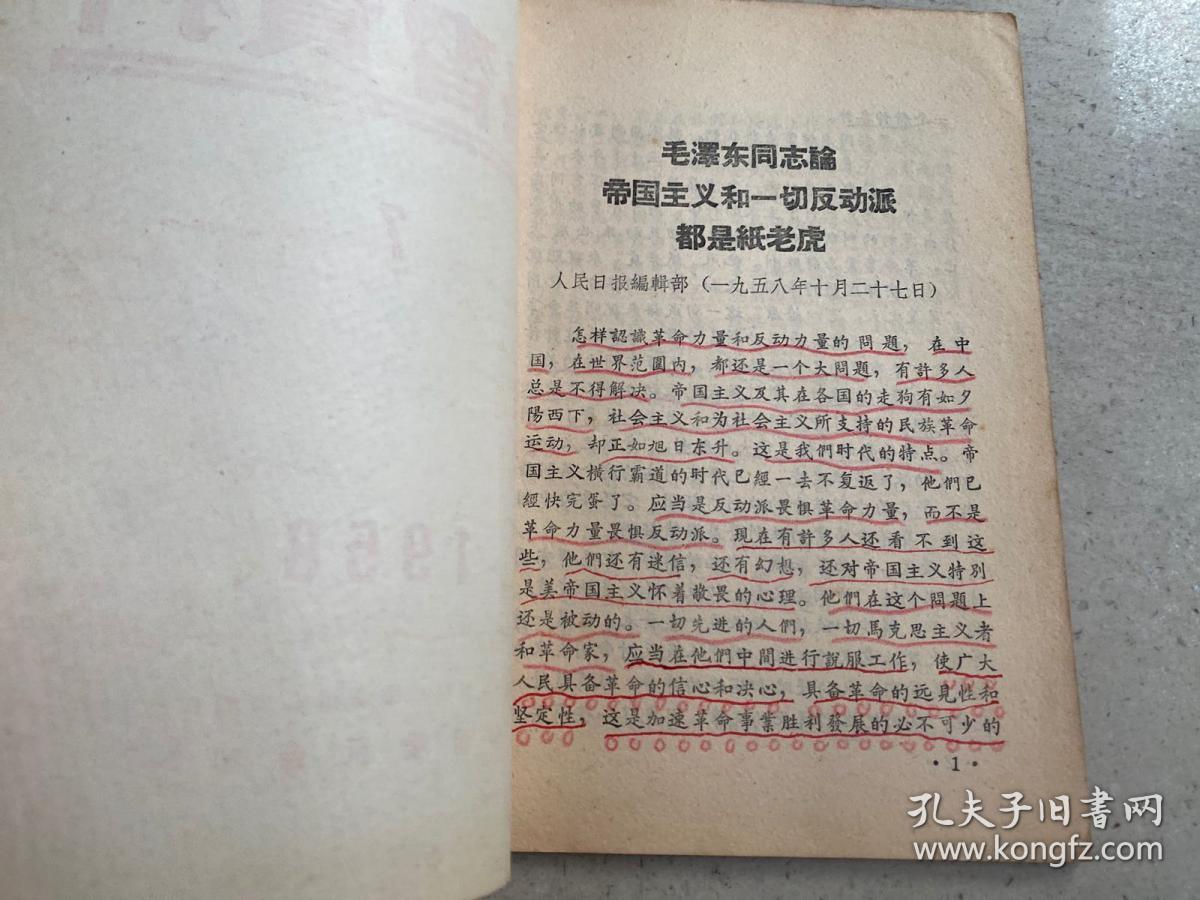 1958
毛澤东同志論
帝国主义和一切反动派
都是紙老虎
人民日报編輯部（一九五八年十月二十七日）
怎样認識革命力量和反动力量的問題，在中
国，在世界范圍内，都还是一个大問題，有許多人
总是不得解决。帝国主义及其在各国的走狗有如夕
陽西下，社会主义和为社会主义所支持的民族革命
运动，却正如旭日东升。这是我們时代的特点。帝
国主义橫行霸道的时代已經一去不复返了，他們已
經快完蛋了。应当是反动派畏惧革命力量，而不是
革命力量畏惧反动派。現在有許多人还看不到这
些，他們还有迷信，还有幻想，还对帝国主义特別
是美帝国主义怀着敬畏的心理。他們在这个問題上
还是被动的。一切先进的人們，一切馬克思主义者
和革命家，应当在他們中間进行說服工作，使广大
人民具备革命的信心和决心，具备革命的远見性和
坚定性，这是加速革命事業胜利發展的必不可少的
·1·
孔夫子旧书网
www.kongfz.com